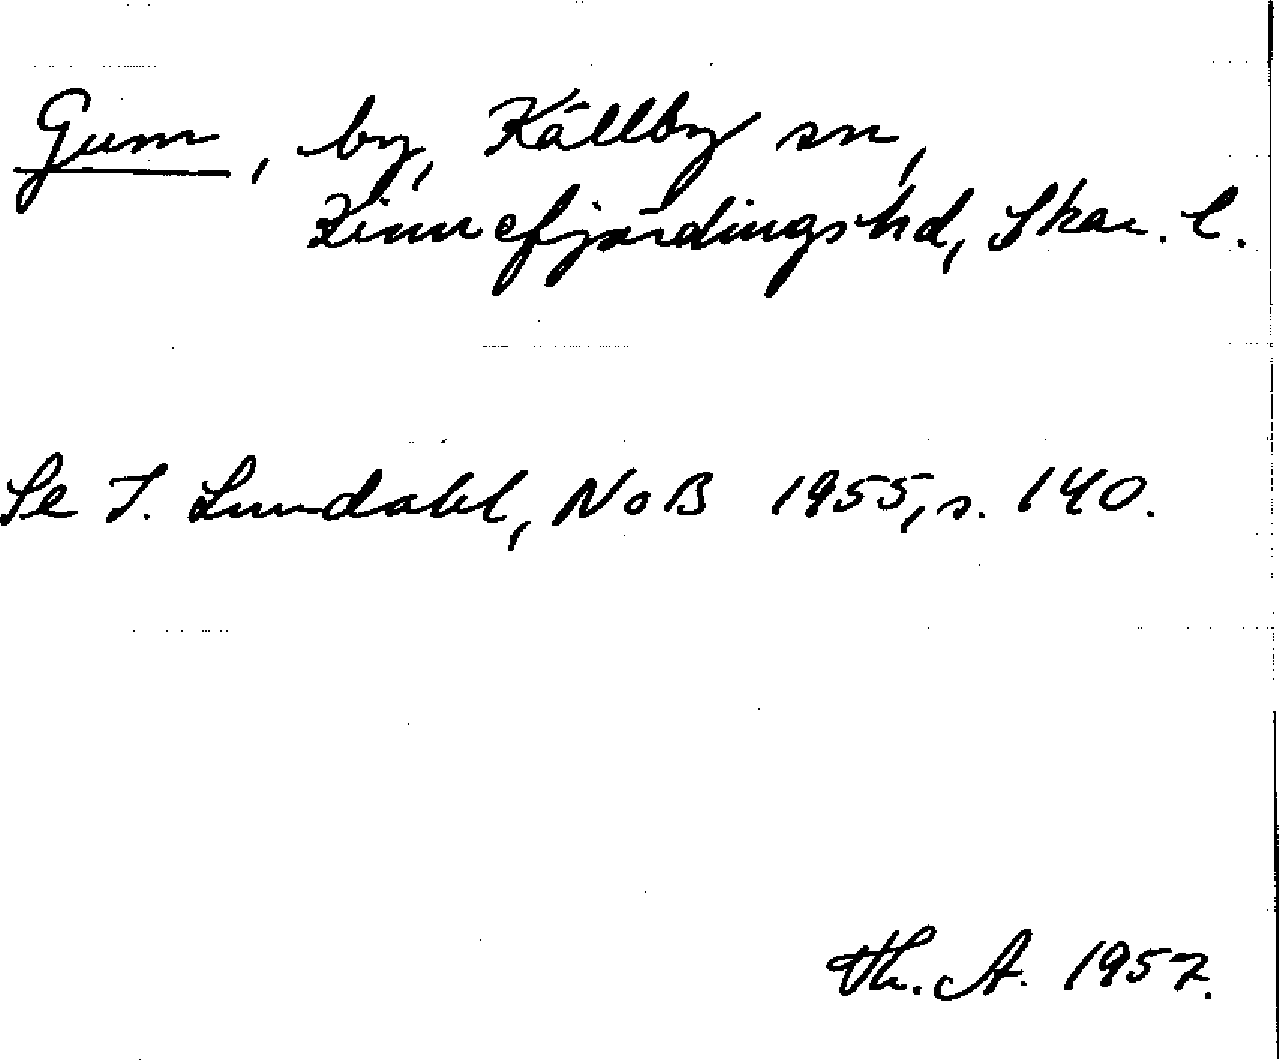 Gum, by, Källby sn,
Kinnefjärdingshd, Skar. l.
Se I. Lundahl, NoB 1955, s. 140.
Th. A. 1957.